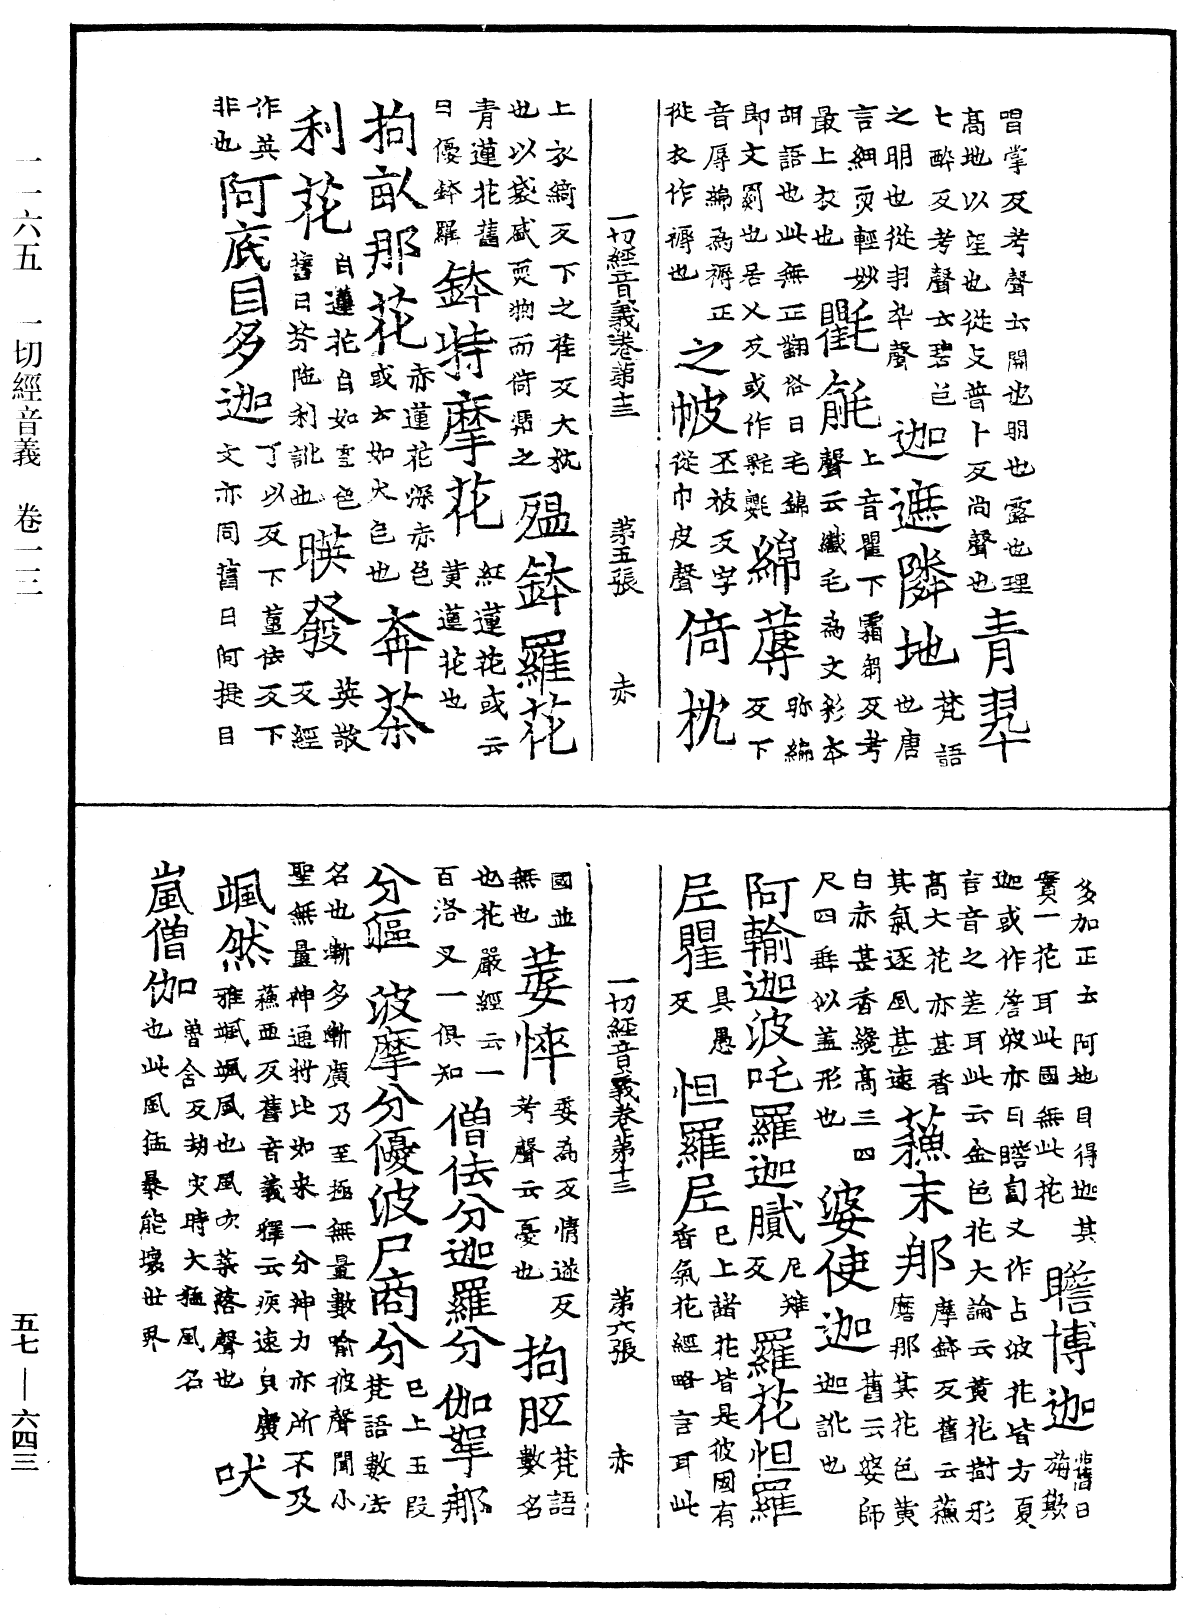 一一六五　一切經音義　卷一三
唱掌反考聲云開也明也露也理
高地以望也從攴普卜反尚聲也
青翠
七醉反考聲云碧色
之明也從羽卒聲
迦遮隣地
梵語
也唐
言細耎輕妙
最上衣也
氍毹
上音瞿下霜芻反考
聲云纖毛為文彩本
胡語也此無正翻俗曰毛錦
即文罽也居乂反或作
綿蓐
弥編
反下
音辱綿為褥正
從衣作褥也
之帔
丕被反字
從巾皮聲
倚枕
一切經音義卷第十三　第五張　赤
上衣綺反下之荏反大枕
也以袋盛耎物而倚凭之
殟鉢羅花
青蓮花舊
曰優鉢羅
鉢特摩花
紅蓮花或云
黃蓮花也
拘畝那花
赤蓮花深赤色
或云如火色也
奔荼
利花
白蓮花白如雪色
舊曰芬陁利訛也
暎發
英敬
反經
作英
非也
阿底目多迦
丁以反下董佉反下
文亦同舊曰阿提目
多加正云阿地目得迦其
實一花耳此國無此花
瞻博迦
舊曰
旃歟
迦或作詹波亦曰瞻匐又作占波花皆方夏
言音之差耳此云金色花大論云黃花樹形
高大花亦甚香
其氣逐風甚遠
蘓末那
摩鉢反舊云蘓
磨那其花色黃
白赤甚香纔高三四
尺四垂似盖形也
婆使迦
舊云婆師
迦訛也
阿輸迦波吒羅迦膩
尼雉
反
羅花怛羅
尼瞿
具愚
反
怛羅尼
已上諸花皆是彼國有
香氣花經略言耳此
一切經音義卷第十三　第六張　赤
國並
無也
萎悴
委為反情遂反
考聲云憂也
拘胝
梵語
數名
也花嚴經云一
百洛叉一俱知
僧佉分迦羅分伽拏那
分嫗波摩分優波尸商分
已上五段
梵語數法
名也漸多漸廣乃至極無量數喻彼聲聞小
聖無量神通將比如来一分神力亦所不及
颯然
蘓匝反舊音義釋云疾速皃廣
雅颯颯風也風吹葉落聲也
吠
嵐僧伽
曽含反劫灾時大猛風名
也此風猛暴能壞世界
五七—六四三